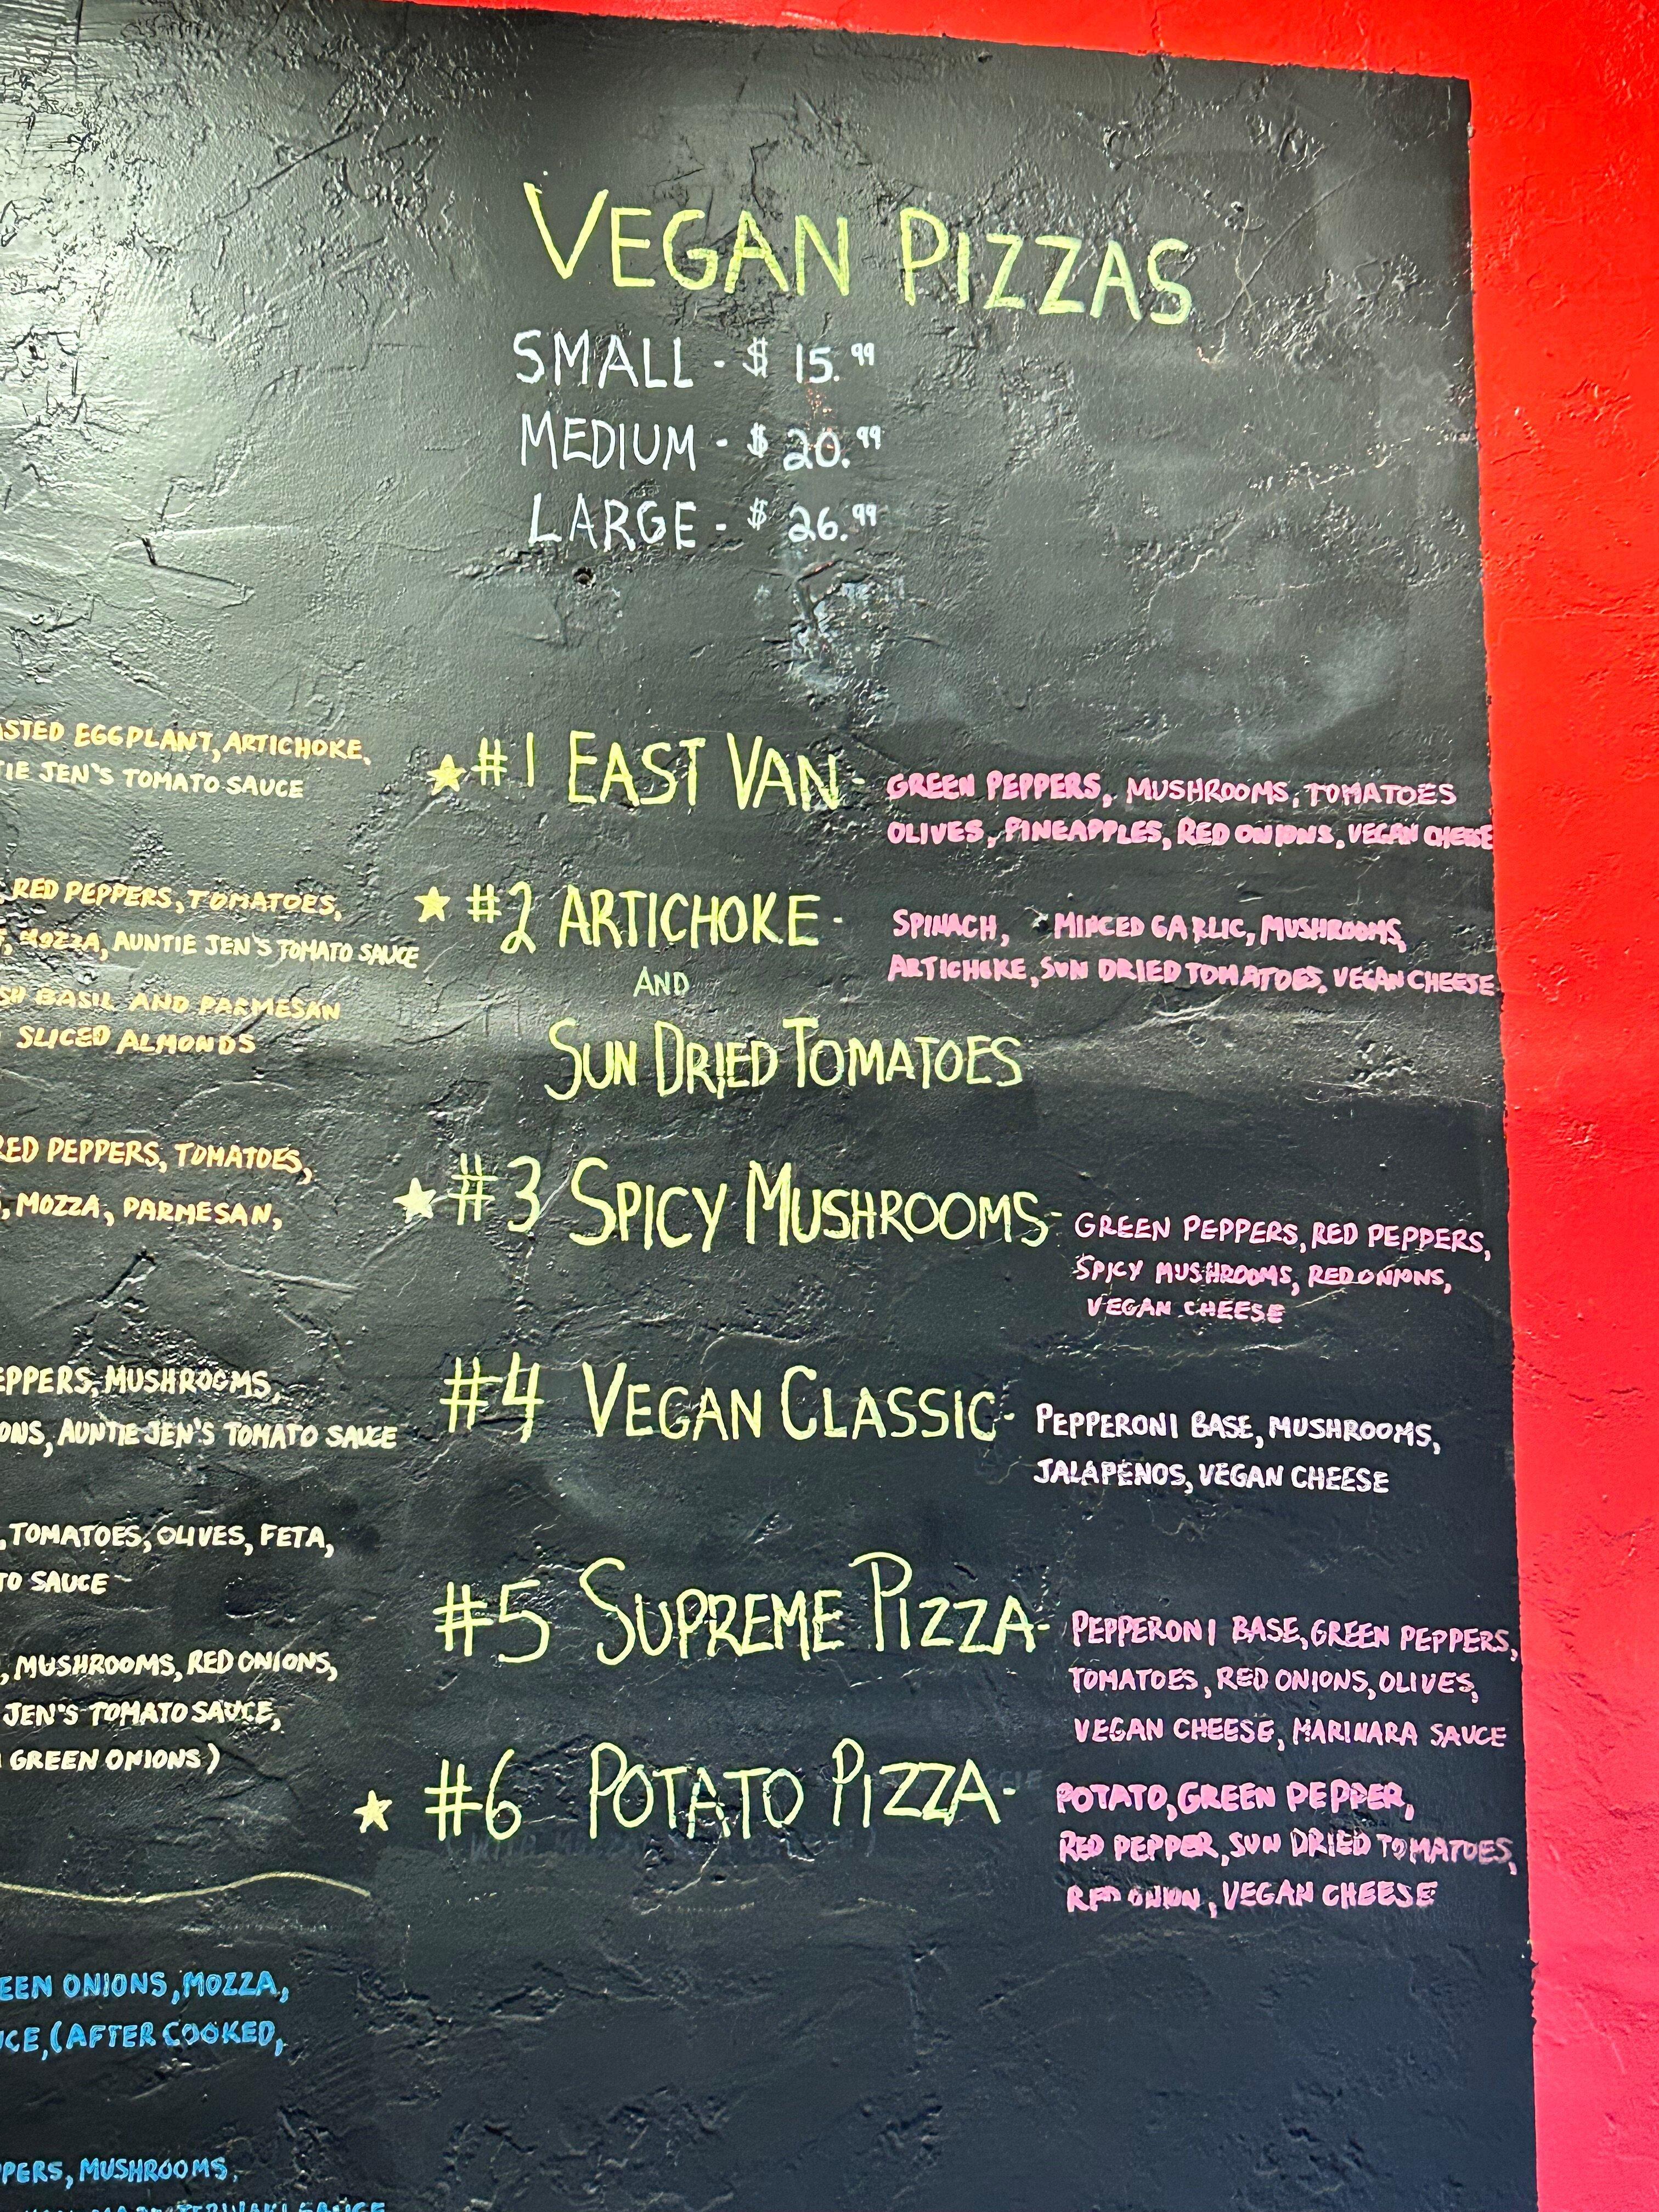 VEGAN PIZZAS
SMALL - $ 15.99
MEDIUM - $ 20.99
LARGE - $ 26.99
EGGPLANT, ARTICHOKE,
JEN'S TOMATO SAUCE
RED PEPPERS, TOMATOES,
MOZZA, AUNTIE JEN'S TOMATO SAUCE
BASIL AND PARMESAN
SLICED ALMONDS
PEPPERS, TOMATOES,
MOZZA, PARMESAN,
MUSHROOMS,
AUNTIE JEN'S TOMATO SAUCE
TOMATOES, OLIVES, FETA,
SAUCE
MUSHROOMS, RED ONIONS,
JEN'S TOMATO SAUCE,
GREEN ONIONS)
ONIONS, MOZZA,
(AFTER COOKED,
MUSHROOMS,
★ #1 EAST VAN - GREEN PEPPERS, MUSHROOMS, TOMATOES
OLIVES, PINEAPPLES, RED ONIONS, VEGAN CHEESE
★ #2 ARTICHOKE - SPINACH, MINCED GARLIC, MUSHROOMS,
AND
SUN DRIED TOMATOES
ARTICHOKE, SUN DRIED TOMATOES, VEGAN CHEESE
★ #3 SPICY MUSHROOMS - GREEN PEPPERS, RED PEPPERS,
SPICY MUSHROOMS, RED ONIONS,
VEGAN CHEESE
#4 VEGAN CLASSIC - PEPPERONI BASE, MUSHROOMS,
JALAPENOS, VEGAN CHEESE
#5 SUPREME PIZZA - PEPPERONI BASE, GREEN PEPPERS,
TOMATOES, RED ONIONS, OLIVES,
VEGAN CHEESE, MARINARA SAUCE
★ #6 POTATO PIZZA - POTATO, GREEN PEPPER,
RED PEPPER, SUN DRIED TOMATOES,
RED ONION, VEGAN CHEESE